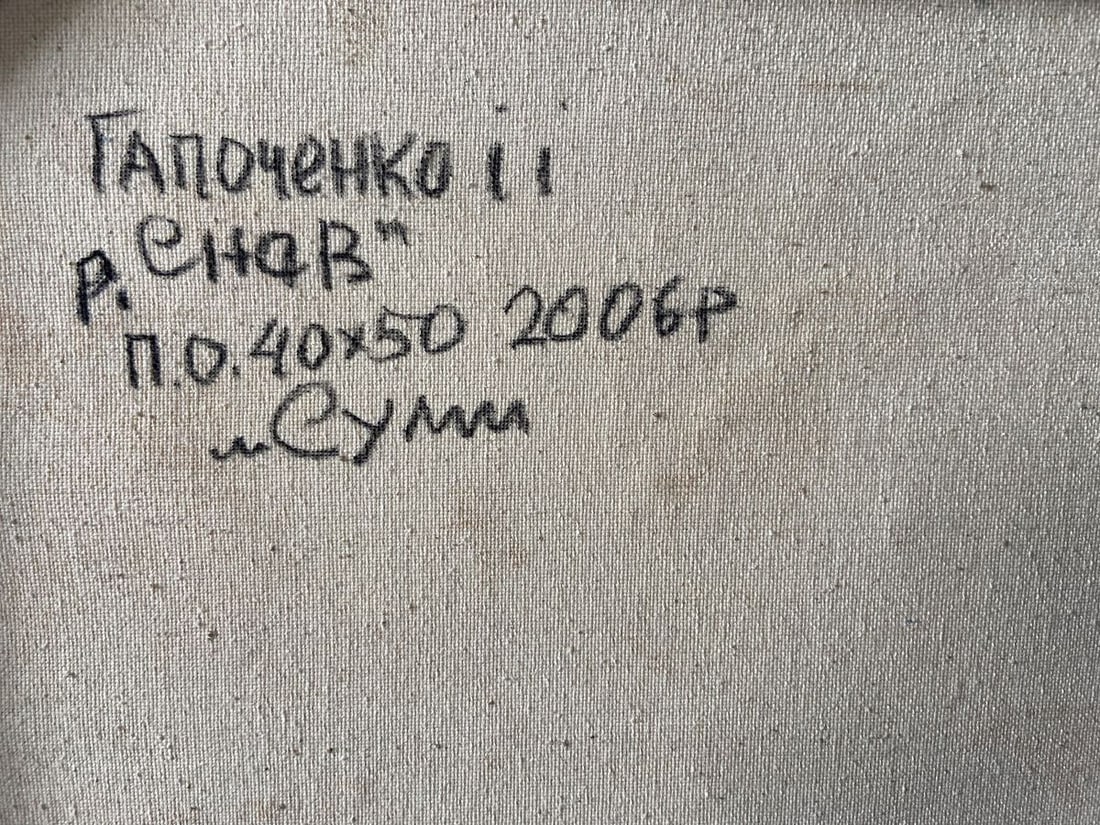 Гапоченко І І
р. Снов"
П.О. 40х50 2006р
м Суми